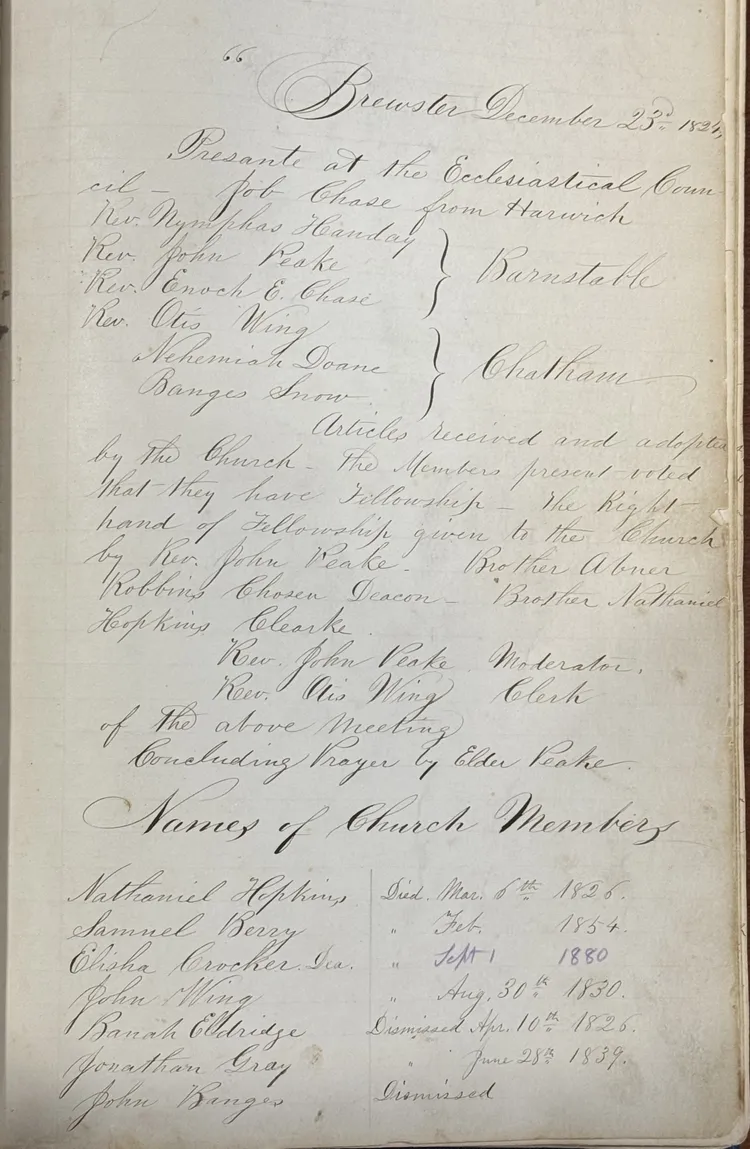 " Brewster December 23d 1824,
Presante at the Ecclesiastical Coun-
cil - Job Chase from Harwich
Rev. Nymphas Handay
Rev. John Peake } Barnstable
Rev. Enoch E. Chase
Rev. Otis Wing
Nehemiah Doane } Chatham
Banges Snow
Articles received and adopted
by the Church - The Members present voted
that they have Fellowship - The Right
hand of Fellowship given to the Church
by Rev. John Peake - Brother Abner
Robbins Chosen Deacon - Brother Nathaniel
Hopkins Clearke.
Rev. John Peake Moderator.
Rev. Otis Wing Clerk
of the above Meeting
Concluding Prayer by Elder Peake.
Names of Church Members
Nathaniel Hopkins Died. Mar. 6th 1826.
Samuel Berry " Feb. 1854.
Elisha Crocker Dea. " Sept 1 1880
John Wing " Aug. 30th 1830.
Banah Eldridge Dismissed Apr. 10th 1826.
Jonathan Gray " June 28th 1839.
John Banges Dismissed